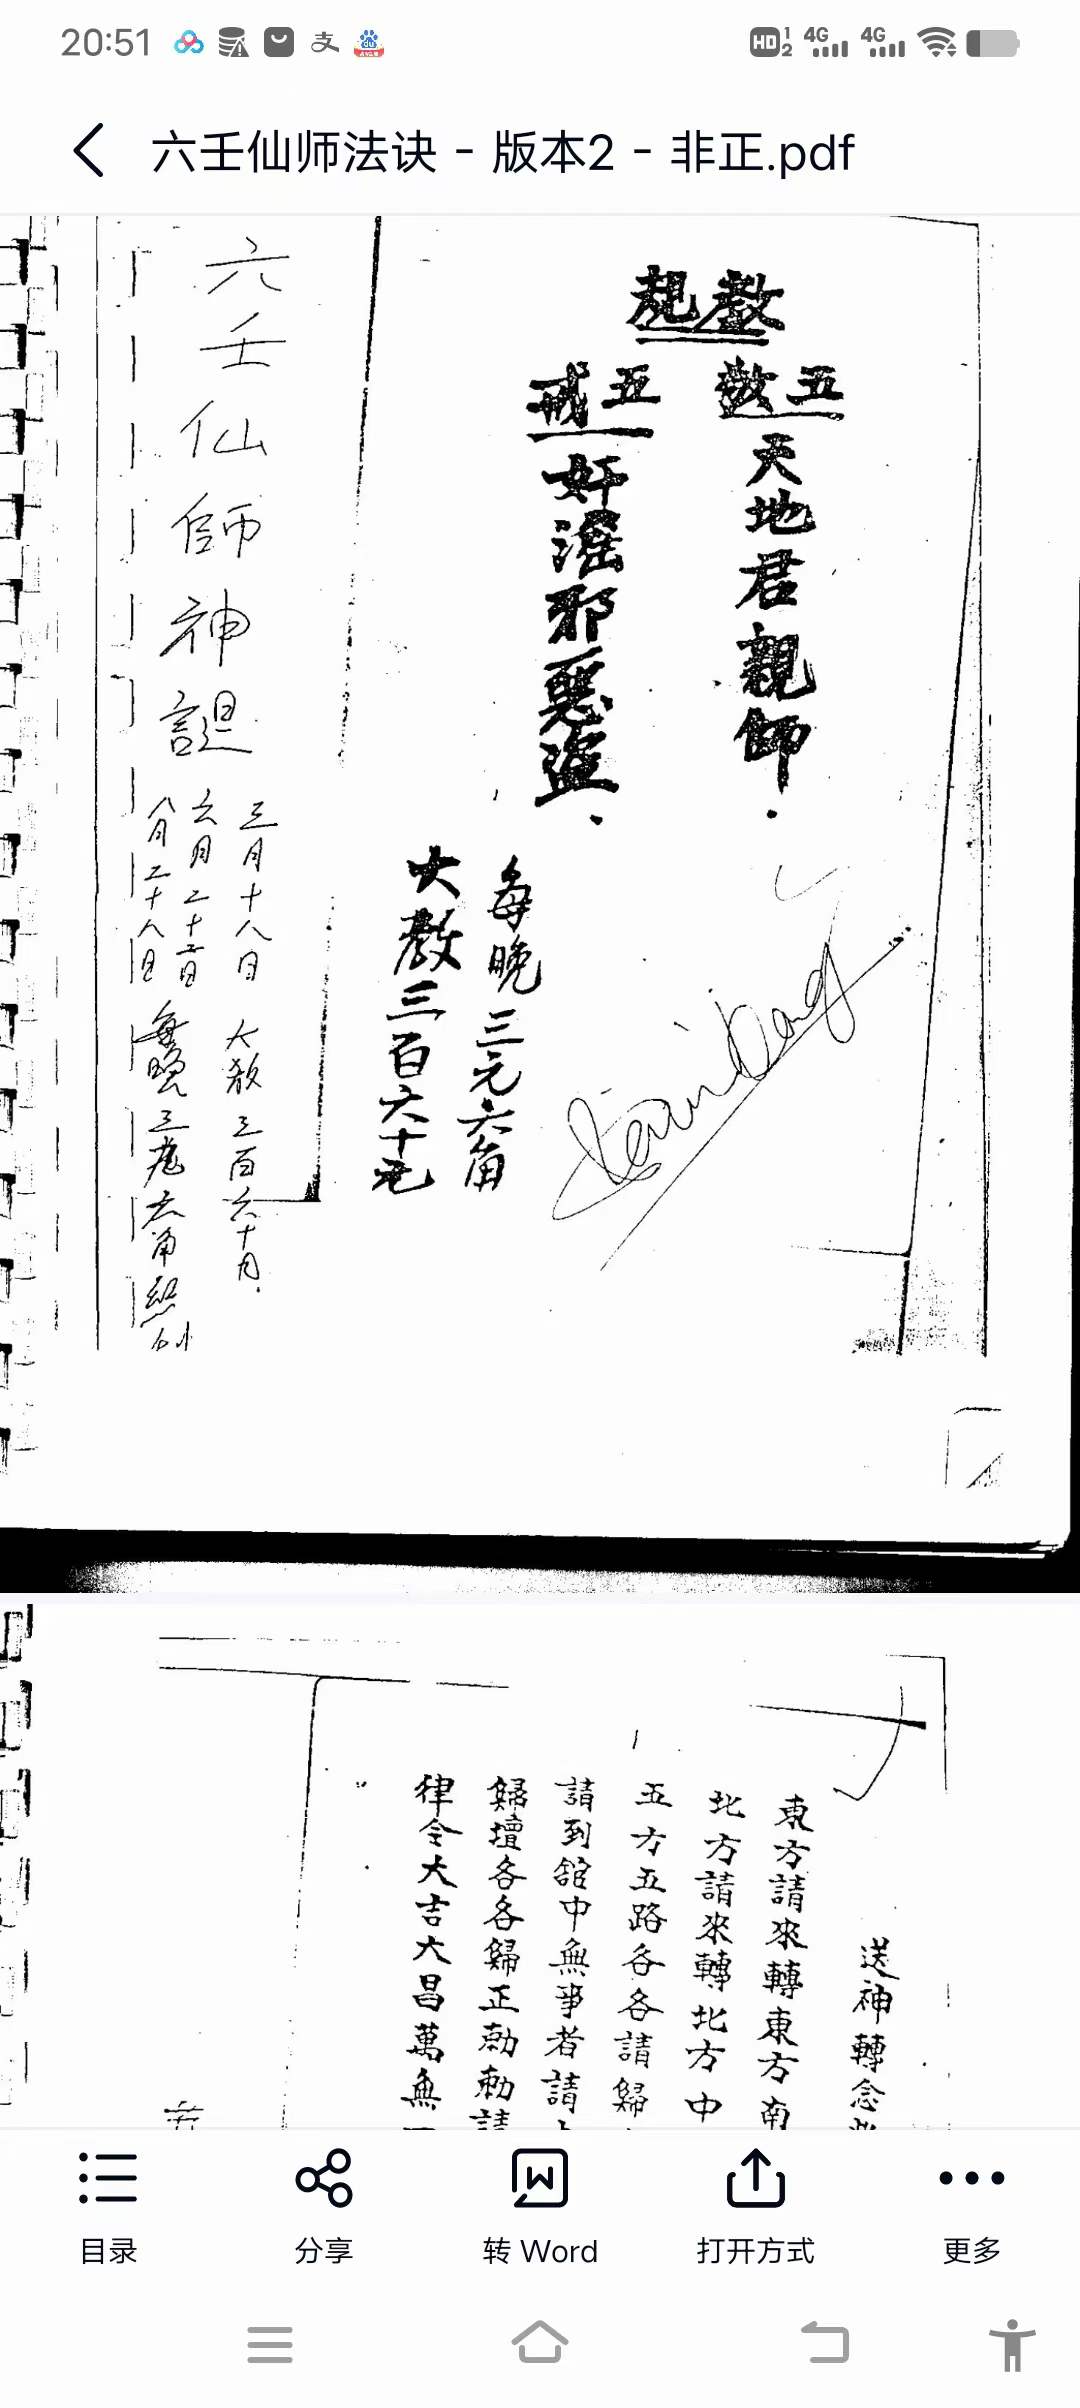 20:51
六壬仙师法诀 - 版本2 - 非正.pdf
教規
五敬
天地君親師.
五戒
奸淫邪惡盜.
每晚三元六角
大教三百六十元
六壬仙師神誕
三月十八日
六月二十二日
八月二十八日
大教三百六十
每晚三元六角
送神轉念
東方請來轉東方南
北方請來轉北方中
五方五路各各請歸
請到舘中無事者請
歸壇各各歸正勅勅請
律令大吉大昌萬無
目录
分享
转 Word
打开方式
更多